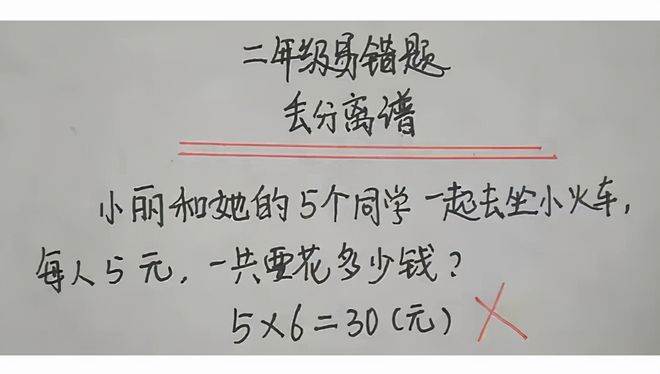 二年级易错题
丢分离谱
小丽和她的5个同学一起去坐小火车,
每人5元,一共要花多少钱?
5×6=30(元)